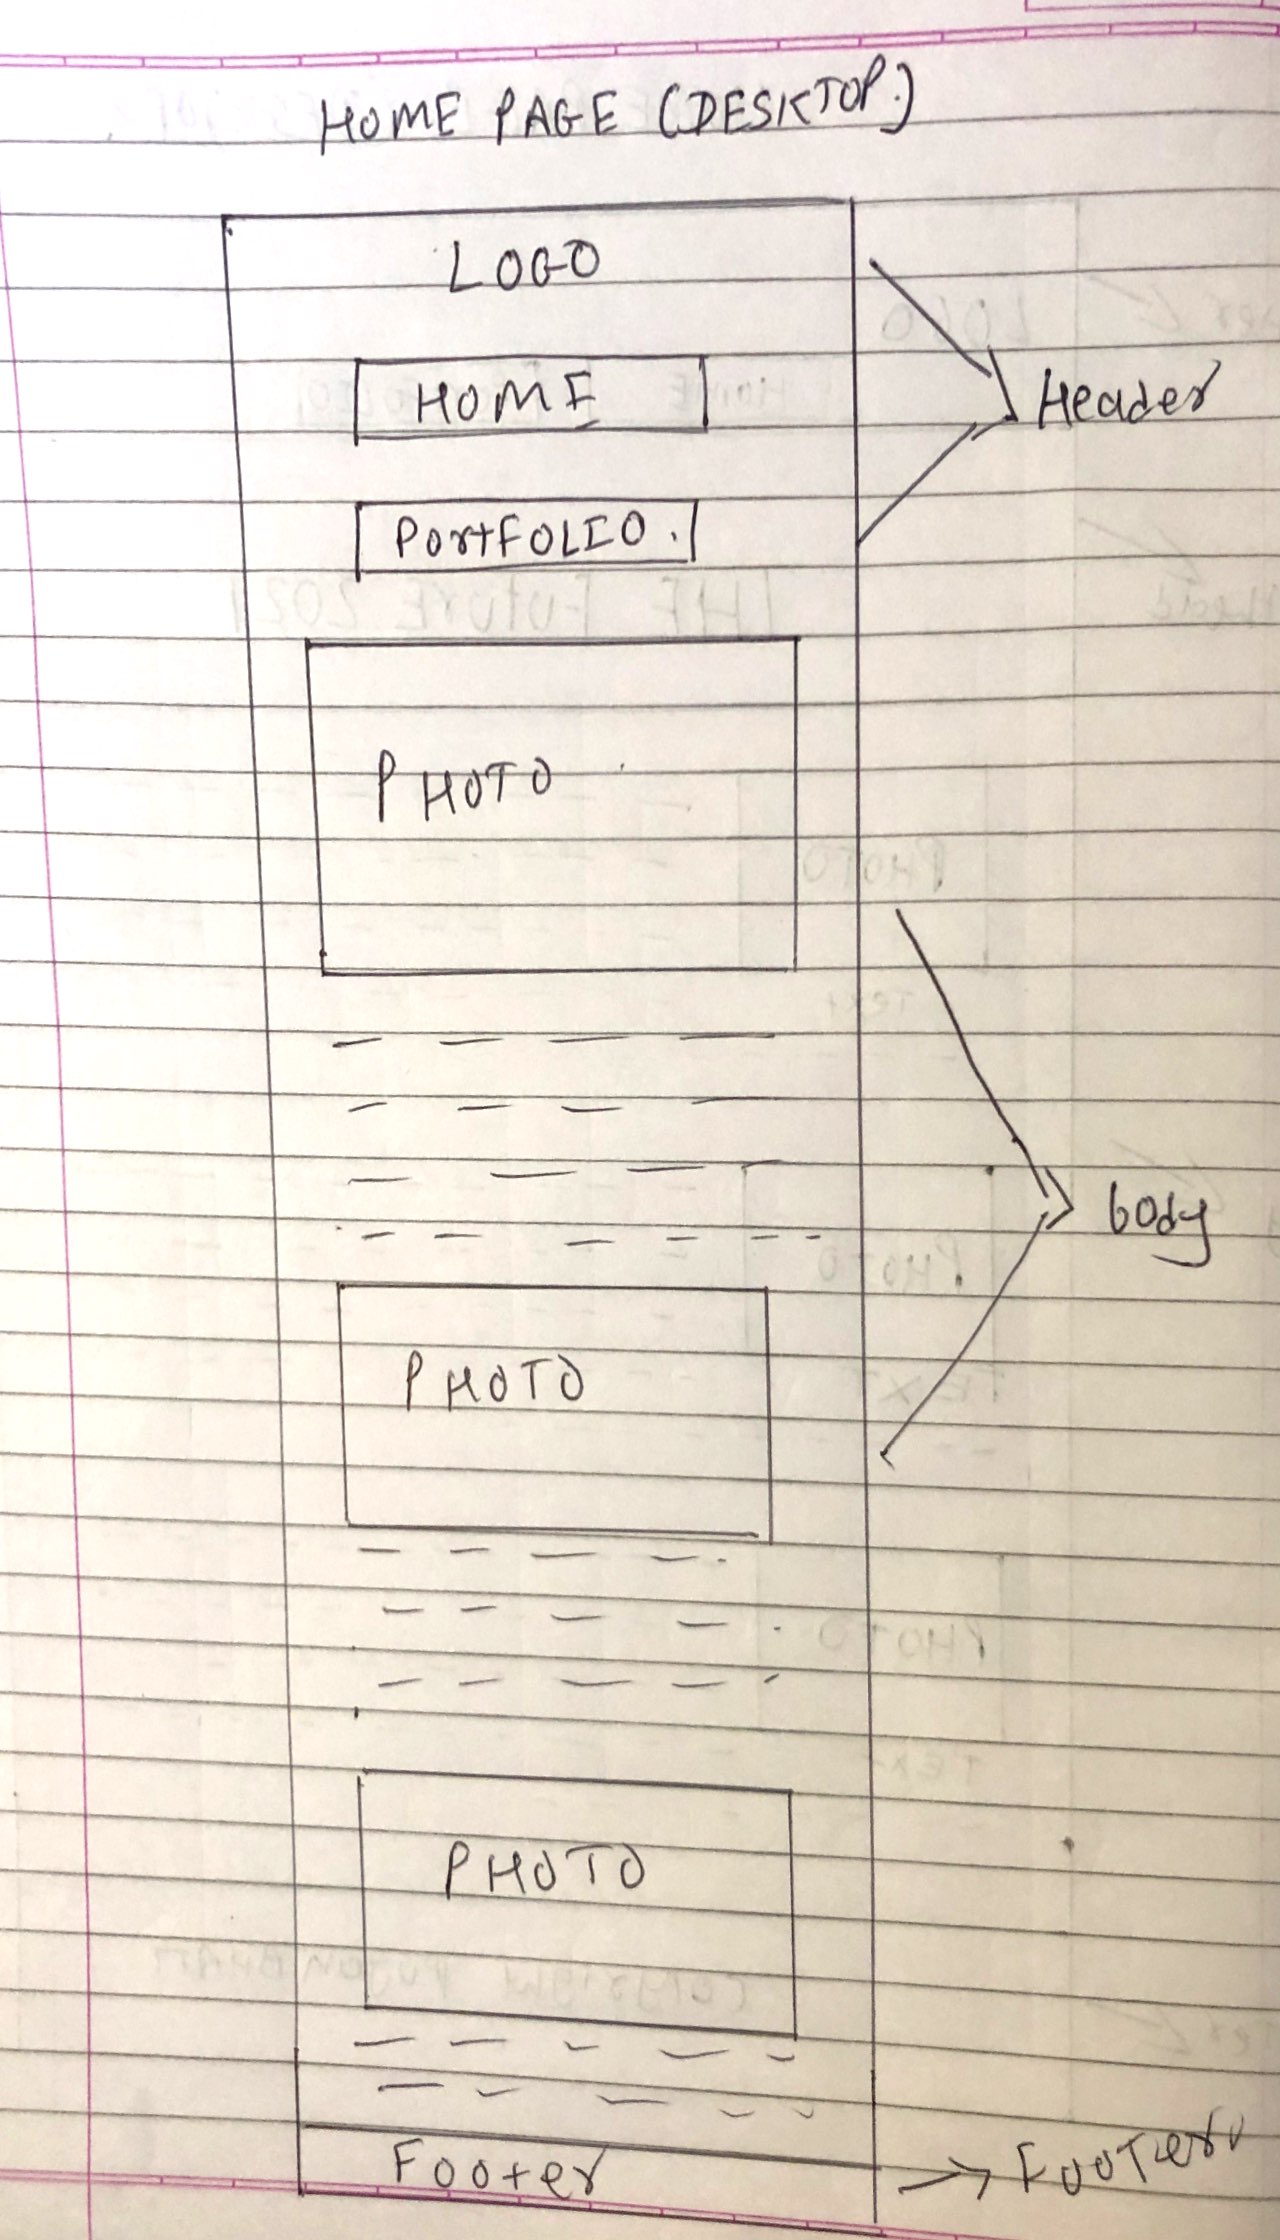 HOME PAGE (DESKTOP.)
LOGO
HOME
Header
PortFOLIO.
PHOTO
body
PHOTO
PHOTO
Footer
FOOTer